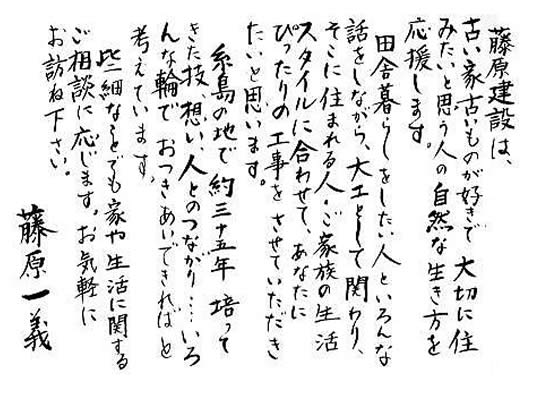 藤原建設は、
古い家古いものが好きで大切に住
みたいと思う人の自然な生き方を
応援します。
田舎暮らしをしたい人といろんな
話をしながら、大工として関わり、
そこに住まれる人・ご家族の生活
スタイルに合わせて、あなたに
ぴったりの工事をさせていただき
たいと思います。
糸島の地で約三十五年培って
きた技、想い、人とのつながり……いろ
んな輪でおつきあいできればと
考えています。
些細なことでも家や生活に関する
ご相談に応じます。お気軽に
お訪ね下さい。
藤原一義